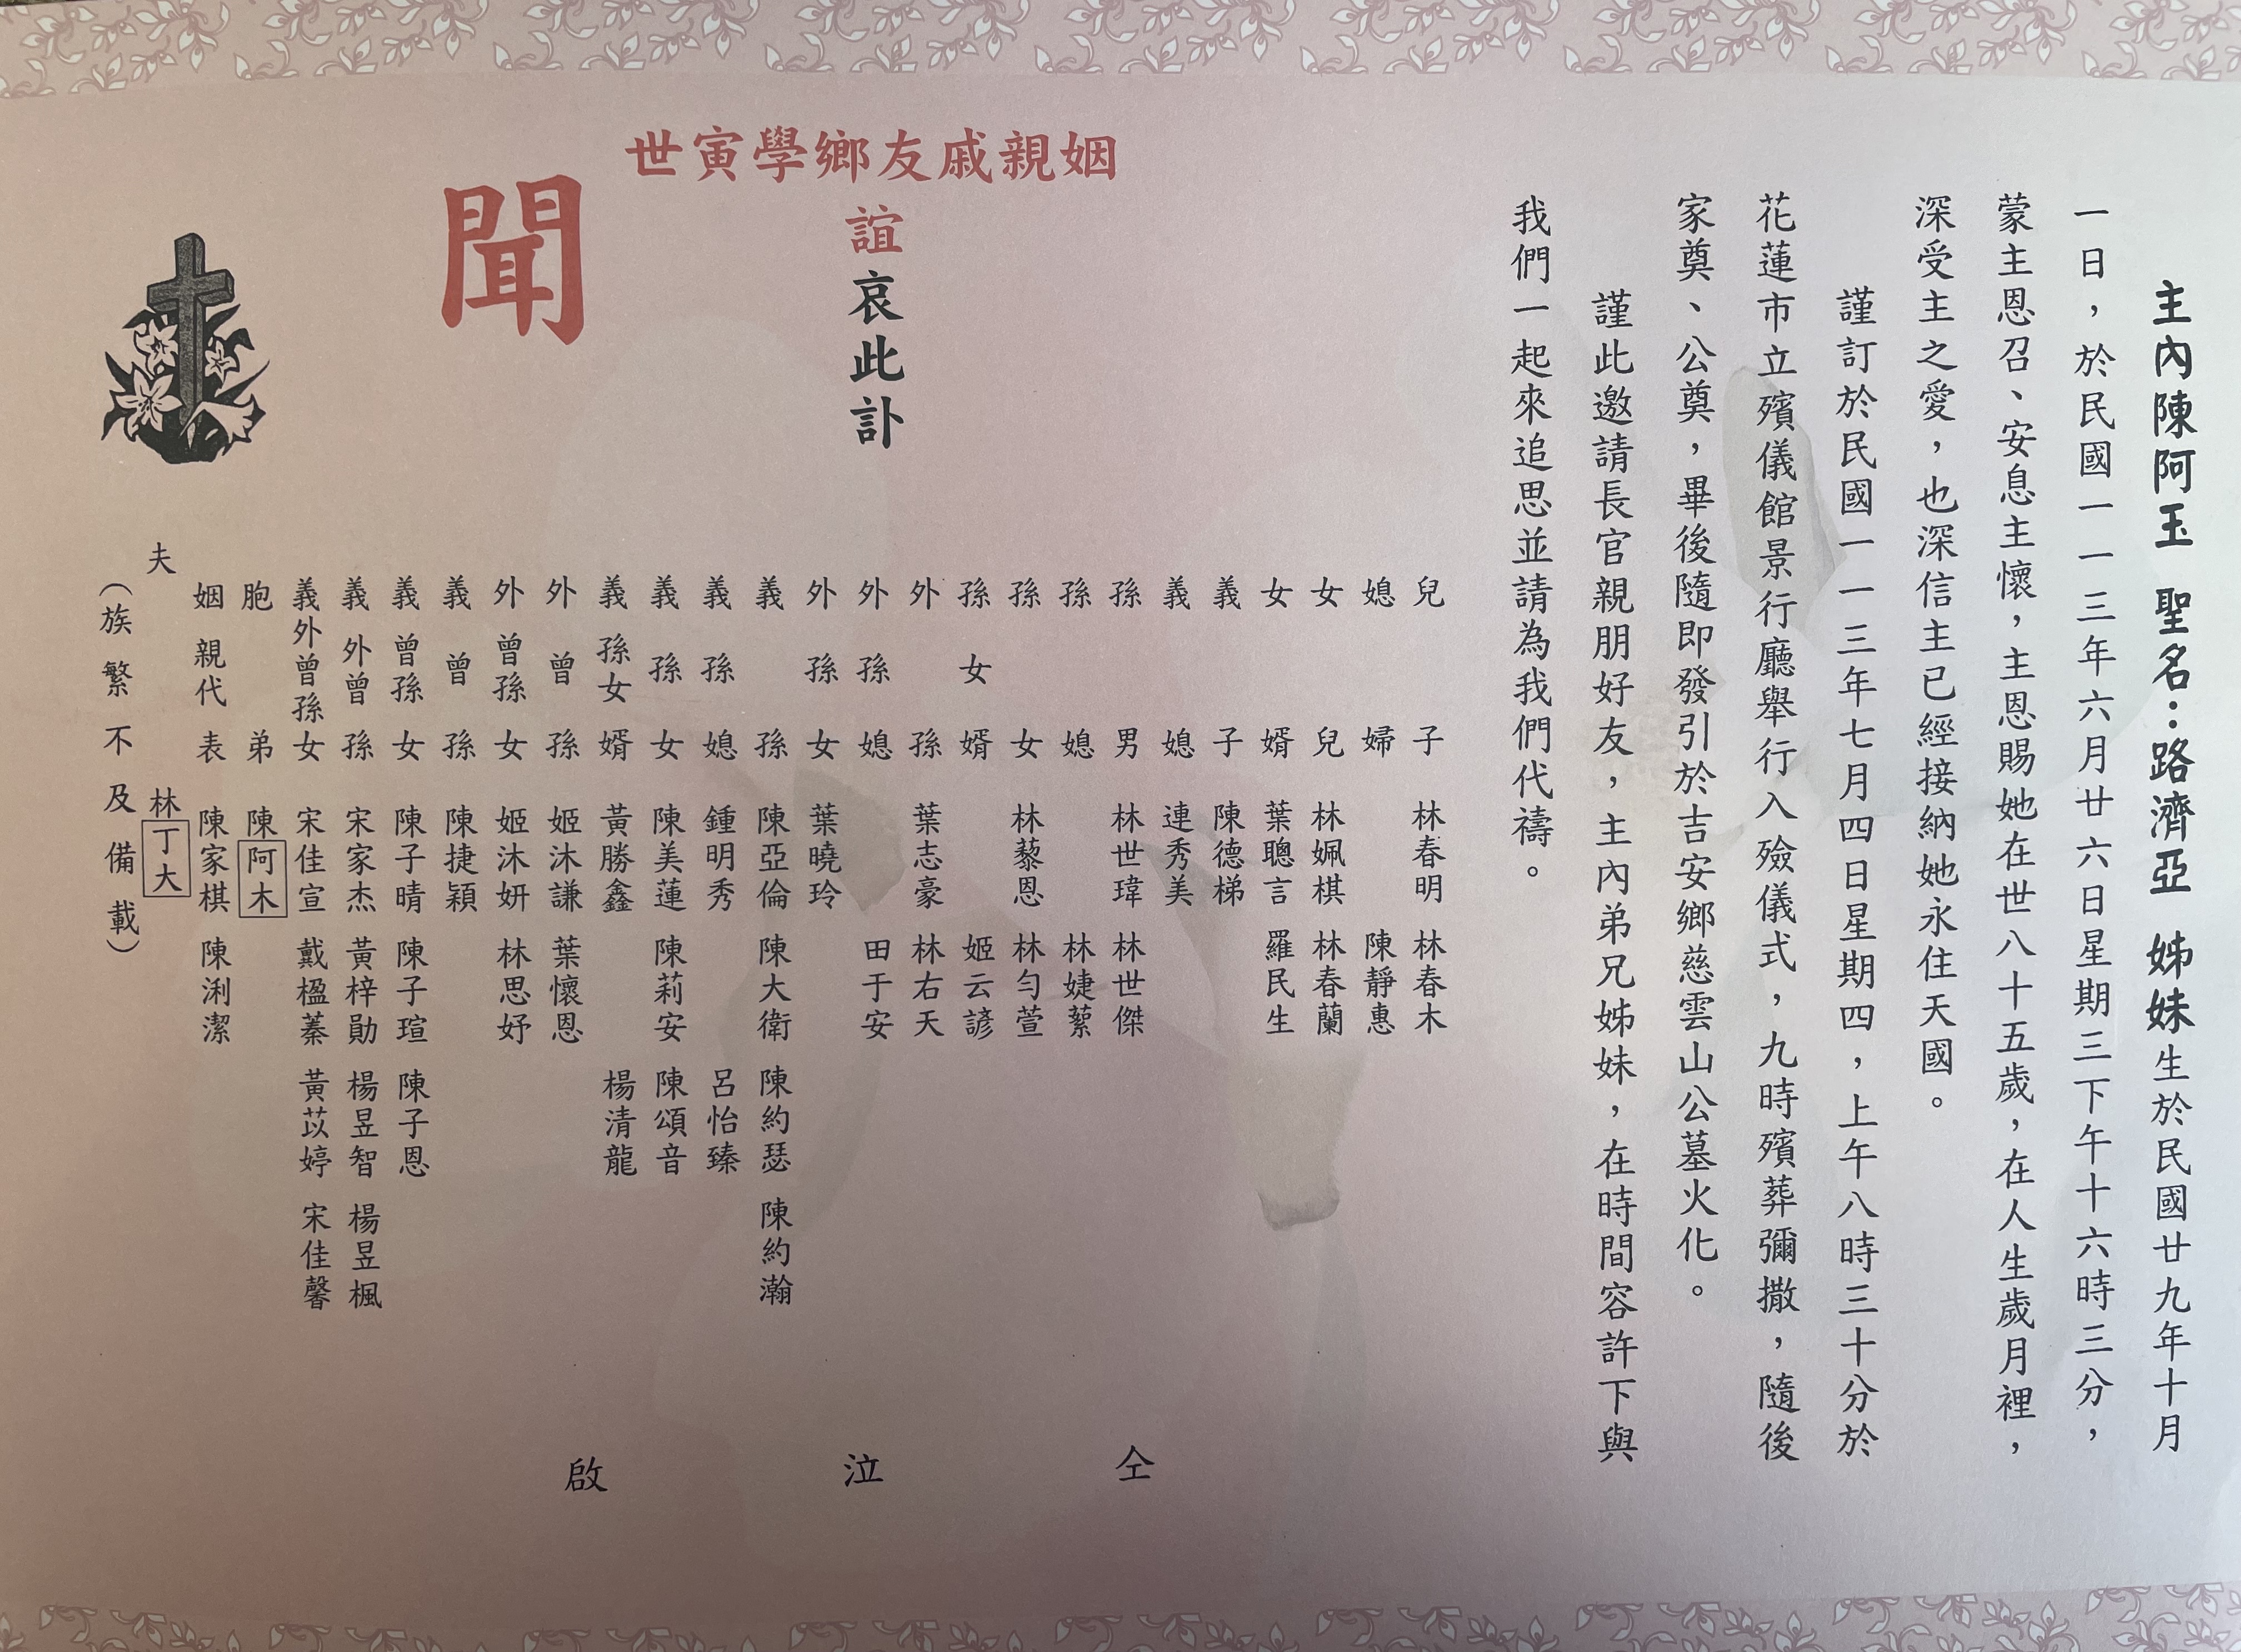 主內陳阿玉 聖名：路濟亞 姊妹生於民國廿九年十月
一日，於民國一一三年六月廿六日星期三下午十六時三分，
蒙主恩召、安息主懷，主恩賜她在世八十五歲，在人生歲月裡，
深受主之愛，也深信主已經接納她永住天國。
謹訂於民國一一三年七月四日星期四，上午八時三十分於
花蓮市立殯儀館景行廳舉行入殮儀式，九時殯葬彌撒，隨後
家奠、公奠，畢後隨即發引於吉安鄉慈雲山公墓火化。
謹此邀請長官親朋好友，主內弟兄姊妹，在時間容許下與
我們一起來追思並請為我們代禱。
姻親戚友鄉學寅世
誼哀此訃
聞
兒子 林春明 林春木
媳婦 陳靜惠
女兒 林姵棋 林春蘭
女婿 葉聰言 羅民生
義子 陳德梯
義媳 連秀美
孫男 林世瑋 林世傑
孫媳 林婕蘩
孫女 林藜恩 林勻萱
孫女婿 姬云諺
外孫 葉志豪 林右天
外孫媳 田于安
外孫女 葉曉玲
義孫 陳亞倫 陳大衛 陳約瑟 陳約瀚
義孫媳 鍾明秀 呂怡臻
義孫女 陳美蓮 陳莉安 陳頌音
義孫女婿 黃勝鑫 楊清龍
外曾孫 姬沐謙 葉懷恩
外曾孫女 姬沐妍 林思妤
義曾孫 陳捷穎
義曾孫女 陳子晴 陳子瑄 陳子恩
義外曾孫 宋家杰 黃梓勛 楊昱智 楊昱楓
義外曾孫女 宋佳宣 戴楹蓁 黃苡婷 宋佳馨
胞弟 陳阿木
姻親代表 陳家棋 陳浰潔
夫 林丁大
（族繁不及備載）
仝泣啟